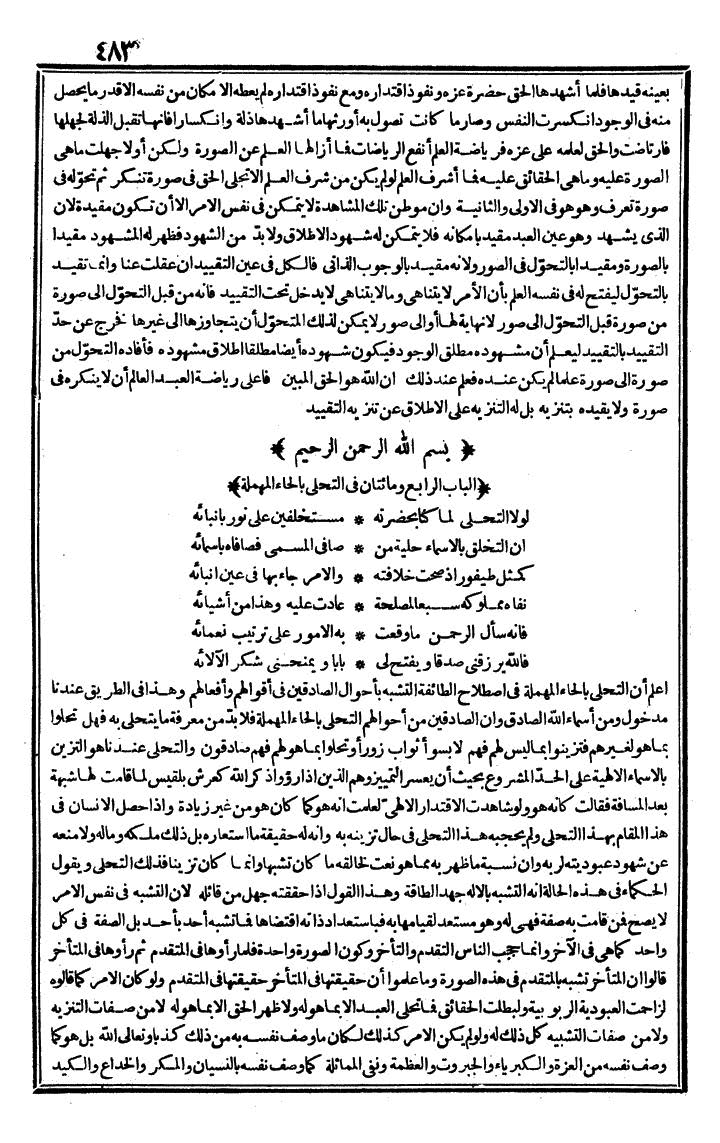 ٤٨٣
بعينه قيدها فلما أشهدها الحق حضرة عزه ونفوذ اقتداره ومع نفوذ اقتداره لم يعطه الامكان من نفسه الاقدر ما يحصل
منه فى الوجود انكسرت النفس وصار ما كانت تصول به أورثها ما أشهدها ذلة وانكسارا فانها تقبل الذلة لجهلها
فارتاضت والحق لعلمه على عزه فرياضة العلم أنفع الرياضات فما أزالها العلم عن الصورة ولكن أولا جهلت ما هى
الصورة عليه وما هى الحقائق عليه فما أشرف العلم لو لم يكن من شرف العلم الاتجلى الحق فى صورة تنكر ثم تحوّله فى
صورة تعرف وهو هو فى الاولى والثانية وان موطن تلك المشاهدة لا يتمكن فى نفس الامر الا أن تكون مقيدة لان
الذى يشهد وهو عين العبد مقيد بامكانه فلا يتمكن له شهود الاطلاق ولا بدّ من الشهود فظهر له المشهود مقيدا
بالصورة ومقيدا بالتحوّل فى الصور ولانه مقيد بالوجوب الذاتى فالكل فى عين التقييد ان عقلت عنا وانما تقيد
بالتحوّل ليفتح له فى نفسه العلم بأن الأمر لا يتناهى وما لا يتناهى لا يدخل تحت التقييد فانه من قبل التحوّل الى صورة
من صورة قبل التحوّل الى صور لا نهاية لها أو الى صور لا يمكن لذلك المتحوّل أن يتجاوزها الى غيرها فخرج عن حدّ
التقييد بالتقييد ليعلم أن مشهوده مطلق الوجود فيكون شهوده أيضا مطلقا اطلاق مشهوده فأفاده التحوّل من
صورة الى صورة علما لم يكن عنده فعلم عند ذلك ان الله هو الحق المبين فاعلى رياضة العبد العالم أن لا ينكره فى
صورة ولا يقيده بتنزيه بل له التنزيه على الاطلاق عن تنزيه التقييد
﴿ بسم الله الرحمن الرحيم ﴾
﴿الباب الرابع ومائتان فى التحلى بالحاء المهملة﴾
لولا التحلى لما كنا بحضرته * مستخلفين على نور بانبائه
ان التخلق بالاسماء حلية من * صافى المسمى فصافاه باسمائه
كمثل طيفور اذ صحت خلافته * والامر جاء بها فى عين انبائه
نفاه مملوكه سبعا لمصلحة * عادت عليه وهذا من أشيائه
فانه سأل الرحمن ما وقعت * به الامور على ترتيب نعمائه
فالله يرزقنى صدقا ويفتح لى * بابا ويمنحنى شكر الآلائه
اعلم أن التحلى بالحاء المهملة فى اصطلاح الطائفة التشبه بأحوال الصادقين فى أقوالهم وأفعالهم وهذا فى الطريق عندنا
مدخول ومن أسماء الله الصادق وان الصادقين من أحوالهم التحلى بالحاء المهملة فلا بدّ من معرفة ما يتحلى به فهل تحلوا
بما هو لغيرهم فتزينوا بما ليس لهم فهم لابسو أثواب زور أو تحلوا بما هو لهم فهم صادقون والتحلى عندنا هو التزين
بالاسماء الالهية على الحدّ المشروع بحيث أن يعسر التمييز وهم الذين اذا رؤوا ذكر الله كعرش بلقيس لما قامت لها شبهة
بعد المسافة فقالت كانه هو ولو شاهدت الاقتدار الالهىّ لعلمت انه هو كما كان هو من غير زيادة واذا حصل الانسان فى
هذا المقام بهذا التحلى ولم يحجبه هذا التحلى فى حال تزينه به وانه له حقيقة ما استعاره بل ذلك ملكه وماله ولا منعه
عن شهود عبوديته لربه وان نسبة ما ظهر به مما هو نعت لخالقه ما كان تشبها وانما كان تزينا فذلك التحلى ويقول
الحكماء فى هذه الحالة انه التشبه بالاله جهد الطاقة وهذا القول اذا حققته جهل من قائله لان التشبه فى نفس الامر
لا يصح فمن قامت به صفة فهى له وهو مستعد لقيامها به فباستعداد ذاته اقتضاها فما تشبه أحد بأحد بل الصفة فى كل
واحد كما هى فى الآخر وانما حجب الناس التقدم والتأخر وكون الصورة واحدة فلما رأوها فى المتقدم ثم رأوها فى المتأخر
قالوا ان المتأخر تشبه بالمتقدم فى هذه الصورة وما علموا أن حقيقتها فى المتأخر حقيقتها فى المتقدم ولو كان الامر كما قالوه
لزاحمت العبودية الربوبية ولبطلت الحقائق فما تحلى العبد الا بما هو له ولا ظهر الحق الا بما هو له لا من صفات التنزيه
ولا من صفات التشبيه كل ذلك له ولو لم يكن الامر كذلك لكان ما وصف نفسه به من ذلك كذبا وتعالى الله بل هو كما
وصف نفسه من العزة والكبرياء والجبروت والعظمة ونفى المماثلة كما وصف نفسه بالنسيان والمكر والخداع والكيد